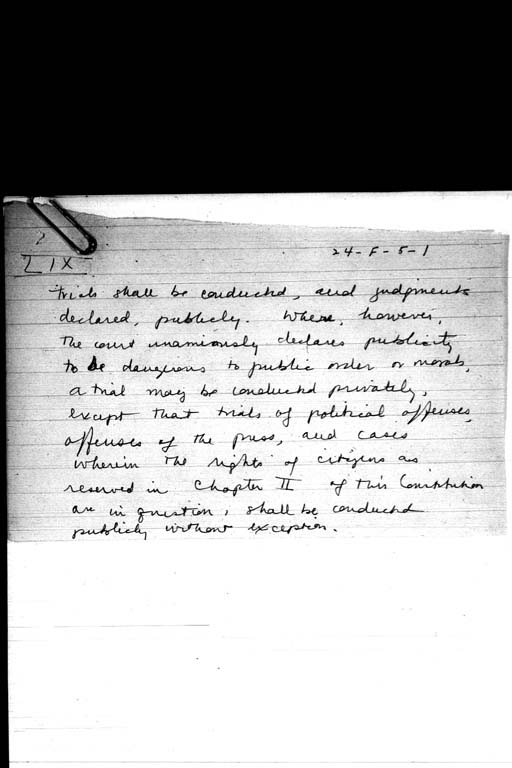 ?
24-F-5-1
LIX
trials shall be conducted, and judgments
declared, publicly. Where, however,
the court unamiously declares publicity
to be dangerous to public order or morals,
a trial may be conducted privately,
except that trials of political offenses,
offenses of the press, and cases
wherein the rights of citizens as
reserved in Chapter II of this Constitution
are in question, shall be conducted
publicly without exception.